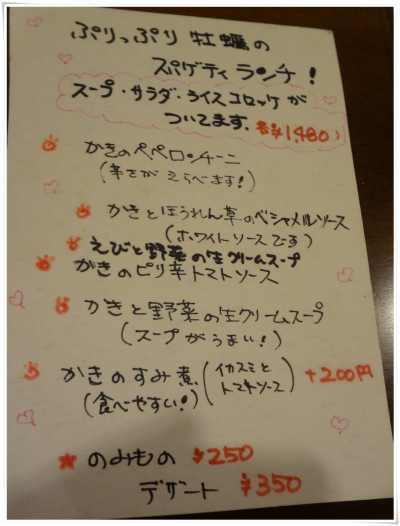 ぷりっぷり 牡蠣の
スパゲティ ランチ!
スープ・サラダ・ライスコロッケが
ついてます. 各¥1,480)
かきのペペロンチーニ
(辛さが えらべます!)
かきとほうれん草のベシャメルソース
(ホワイトソースです)
えびと野菜の生クリームスープ
かきのピリ辛トマトソース
かきと野菜の生クリームスープ
(スープがうまい!)
かきのすみ煮 (イカスミと トマトソース) +200円
(食べやすい!)
★ のみもの ¥250
デザート ¥350